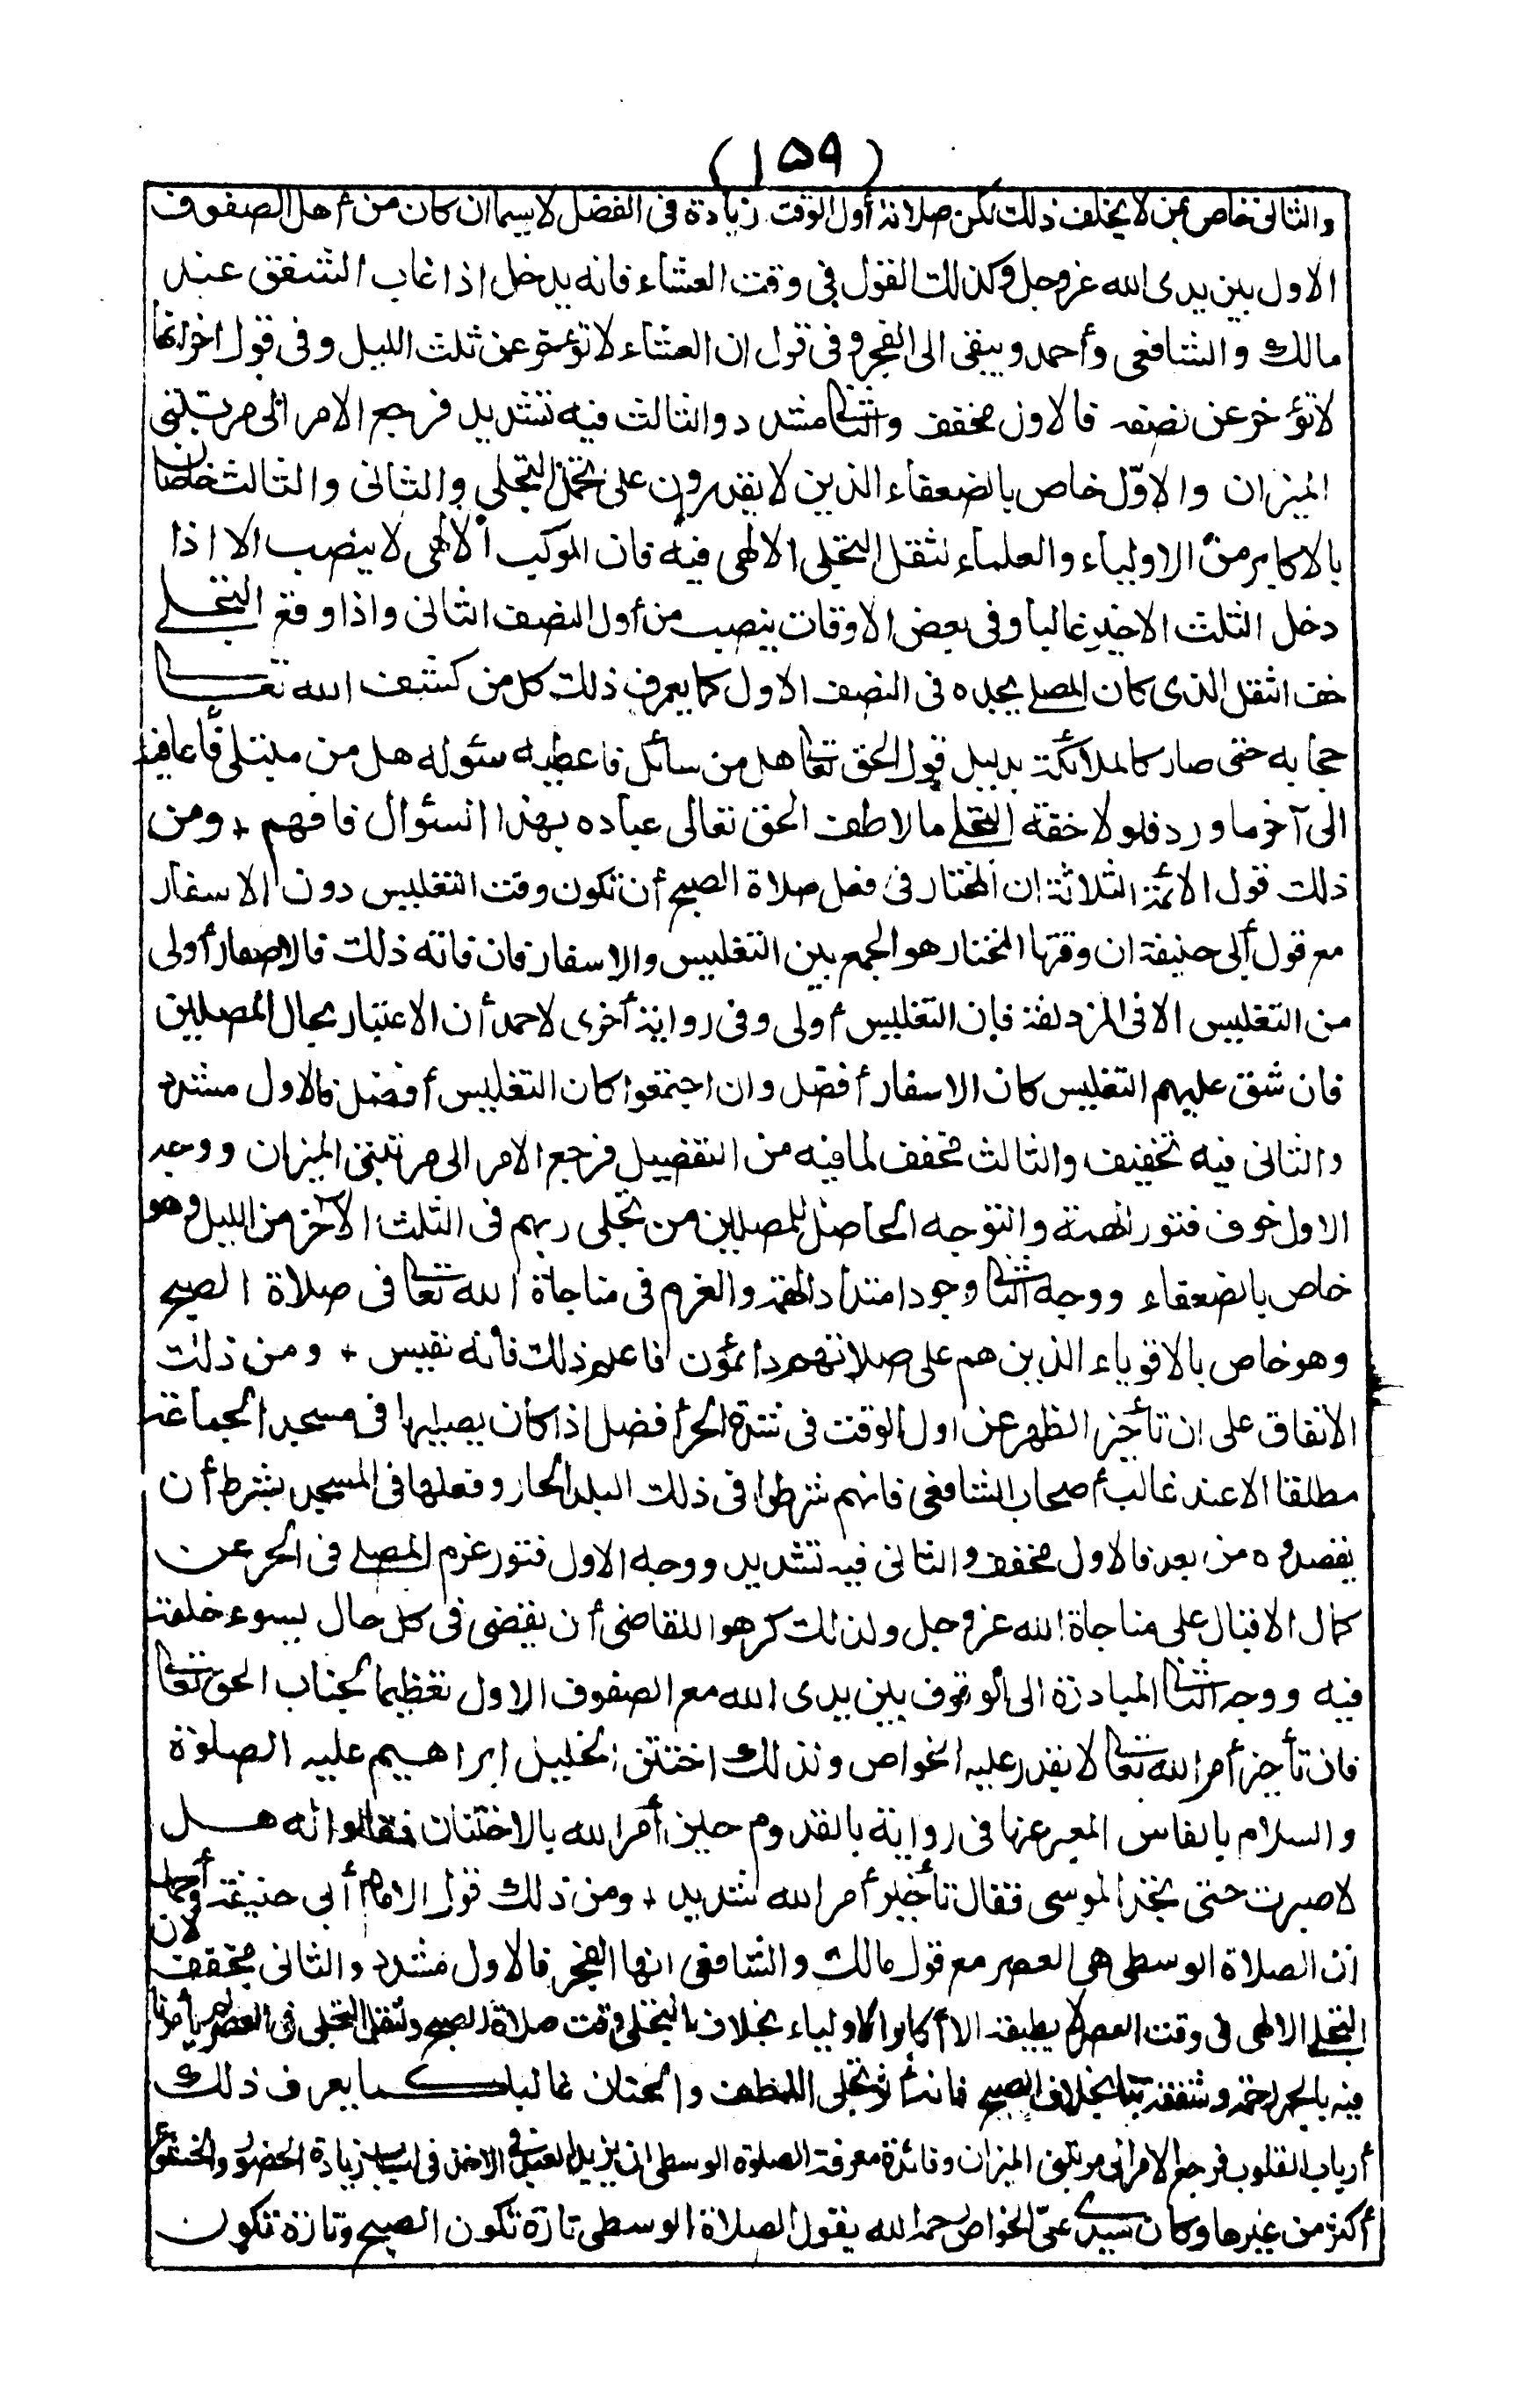 (١٥٩)
والثانى خاص بمن لا يخلف ذلك لكن صلاته أول الوقت زيادة فى الفضل لا سيما ان كان من أهل الصفوف
الاول بين يدى الله عزوجل وكذلك القول فى وقت العشاء فانه يدخل اذا غاب الشفق عند
مالك والشافعى وأحمد ويبقى الى الفجر وفى قول ان العشاء لا تؤخر عن ثلث الليل وفى قول آخر انها
لا تؤخر عن نصفه فالاول مخفف والثانى مشدد والثالث فيه تشديد فرجع الامر الى مرتبتى
الميزان والاوّل خاص بالضعفاء الذين لا يقدرون على تحمل التجلى والثانى والثالث خاصان
بالاكابر من الاولياء والعلماء لثقل التجلى الالهى فيه فان الموكب الالهى لا ينصب الا اذا
دخل الثلث الاخير غالبا وفى بعض الاوقات ينصب من أول النصف الثانى واذا وقع التجلى
خف الثقل الذى كان المصلى يجده فى النصف الاول كما يعرف ذلك كل من كشف الله تعالى
حجابه حتى صار كالملائكة بدليل قول الحق تعالى هل من سائل فاعطيه سئوله هل من مبتلى فأعافيه
الى آخر ما ورد فلولا خفة التجلى ما لاطف الحق تعالى عباده بهذا السئوال فافهم + ومن
ذلك قول الائمة الثلاثة ان المختار فى فعل صلاة الصبح أن تكون وقت التغليس دون الاسفار
مع قول أبى حنيفة ان وقتها المختار هو الجمع بين التغليس والاسفار فان فاته ذلك فالاسفار أولى
من التغليس الا فى المزدلفة فإن التغليس أولى وفى رواية أخرى لاحمد أن الاعتبار بحال المصلين
فان شق عليهم التغليس كان الاسفار أفضل وان اجتمعوا كان التغليس أفضل فالاول مشدد
والثانى فيه تخفيف والثالث مخفف لما فيه من التفصيل فرجع الامر الى مرتبتى الميزان ووجه
الاول خوف فتور الهمة والتوجه الحاصل للمصلين من تجلى ربهم فى الثلث الآخر من الليل وهو
خاص بالضعفاء ووجه الثانى وجود امتداد الهمة والعزم فى مناجاة الله تعالى فى صلاة الصبح
وهو خاص بالاقوياء الذين هم على صلاتهم دائمون فاعلم ذلك فأنه نفيس + ومن ذلك
الاتفاق على ان تأخير الظهر عن اول الوقت فى شدة الحر أفضل اذا كان يصليها فى مسجد الجماعة
مطلقا الا عند غالب أصحاب الشافعى فانهم شرطوا فى ذلك البلد الحار وفعلها فى المسجد بشرط أن
يقصدوه من بعد فالاول مخفف والثانى فيه تشديد ووجه الاول فتور عزم المصلى فى الحر عن
كمال الاقبال على مناجاة الله عزوجل ولذلك كرهوا للقاضى أن يقضى فى كل حال يسوء خلقه
فيه ووجه الثانى المبادرة الى الوقوف بين يدى الله مع الصفوف الاول تعظيما لجناب الحق تعالى
فان تأخير أمر الله تعالى لا يقدر عليه الخواص ولذلك اختتن الخليل ابراهيم عليه الصلوة
والسلام بالفاس المعبر عنها فى رواية بالقدوم حين أمر الله بالاختتان فقالوا له هل
لا صبرت حتى تجد الموسى فقال تأخير أمر الله شديد + ومن ذلك قول الامام أبى حنيفة وأحمد
ان الصلاة الوسطى هى العصر مع قول مالك والشافعى انها الفجر فالاول مشدد والثانى مخفف لان
التجلى الالهى فى وقت العصر لا يطيقه الا أكابر الاولياء بخلاف التجلى وقت صلاة الصبح ولثقل التجلى فى العصر لم يأمرنا
فيه بالجهر رحمة وشفقة بنا بخلاف الصبح فانه تجلى اللطف والحنان غالبا كما يعرف ذلك
أرباب القلوب فرجع الامر الى مرتبتى الميزان وفائدة معرفة الصلوة الوسطى ان يزيد العبد فى الاخذ فى اسباب زيادة الحضور والخشوع
أكثر من غيرها وكان سيدى علىّ الخواص رحمه الله يقول الصلاة الوسطى تارة تكون الصبح وتارة تكون